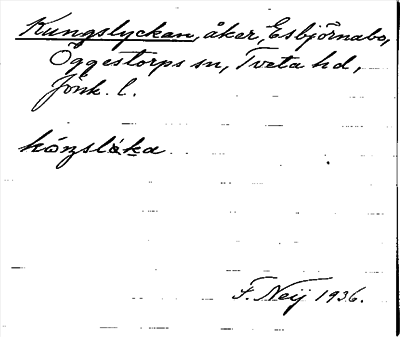 Kungslyckan, åker, Esbjörnabo,
Öggestorps sn, Tveta hd,
Jönk. l.
kóŋslo̰ka
F. Neij 1936.